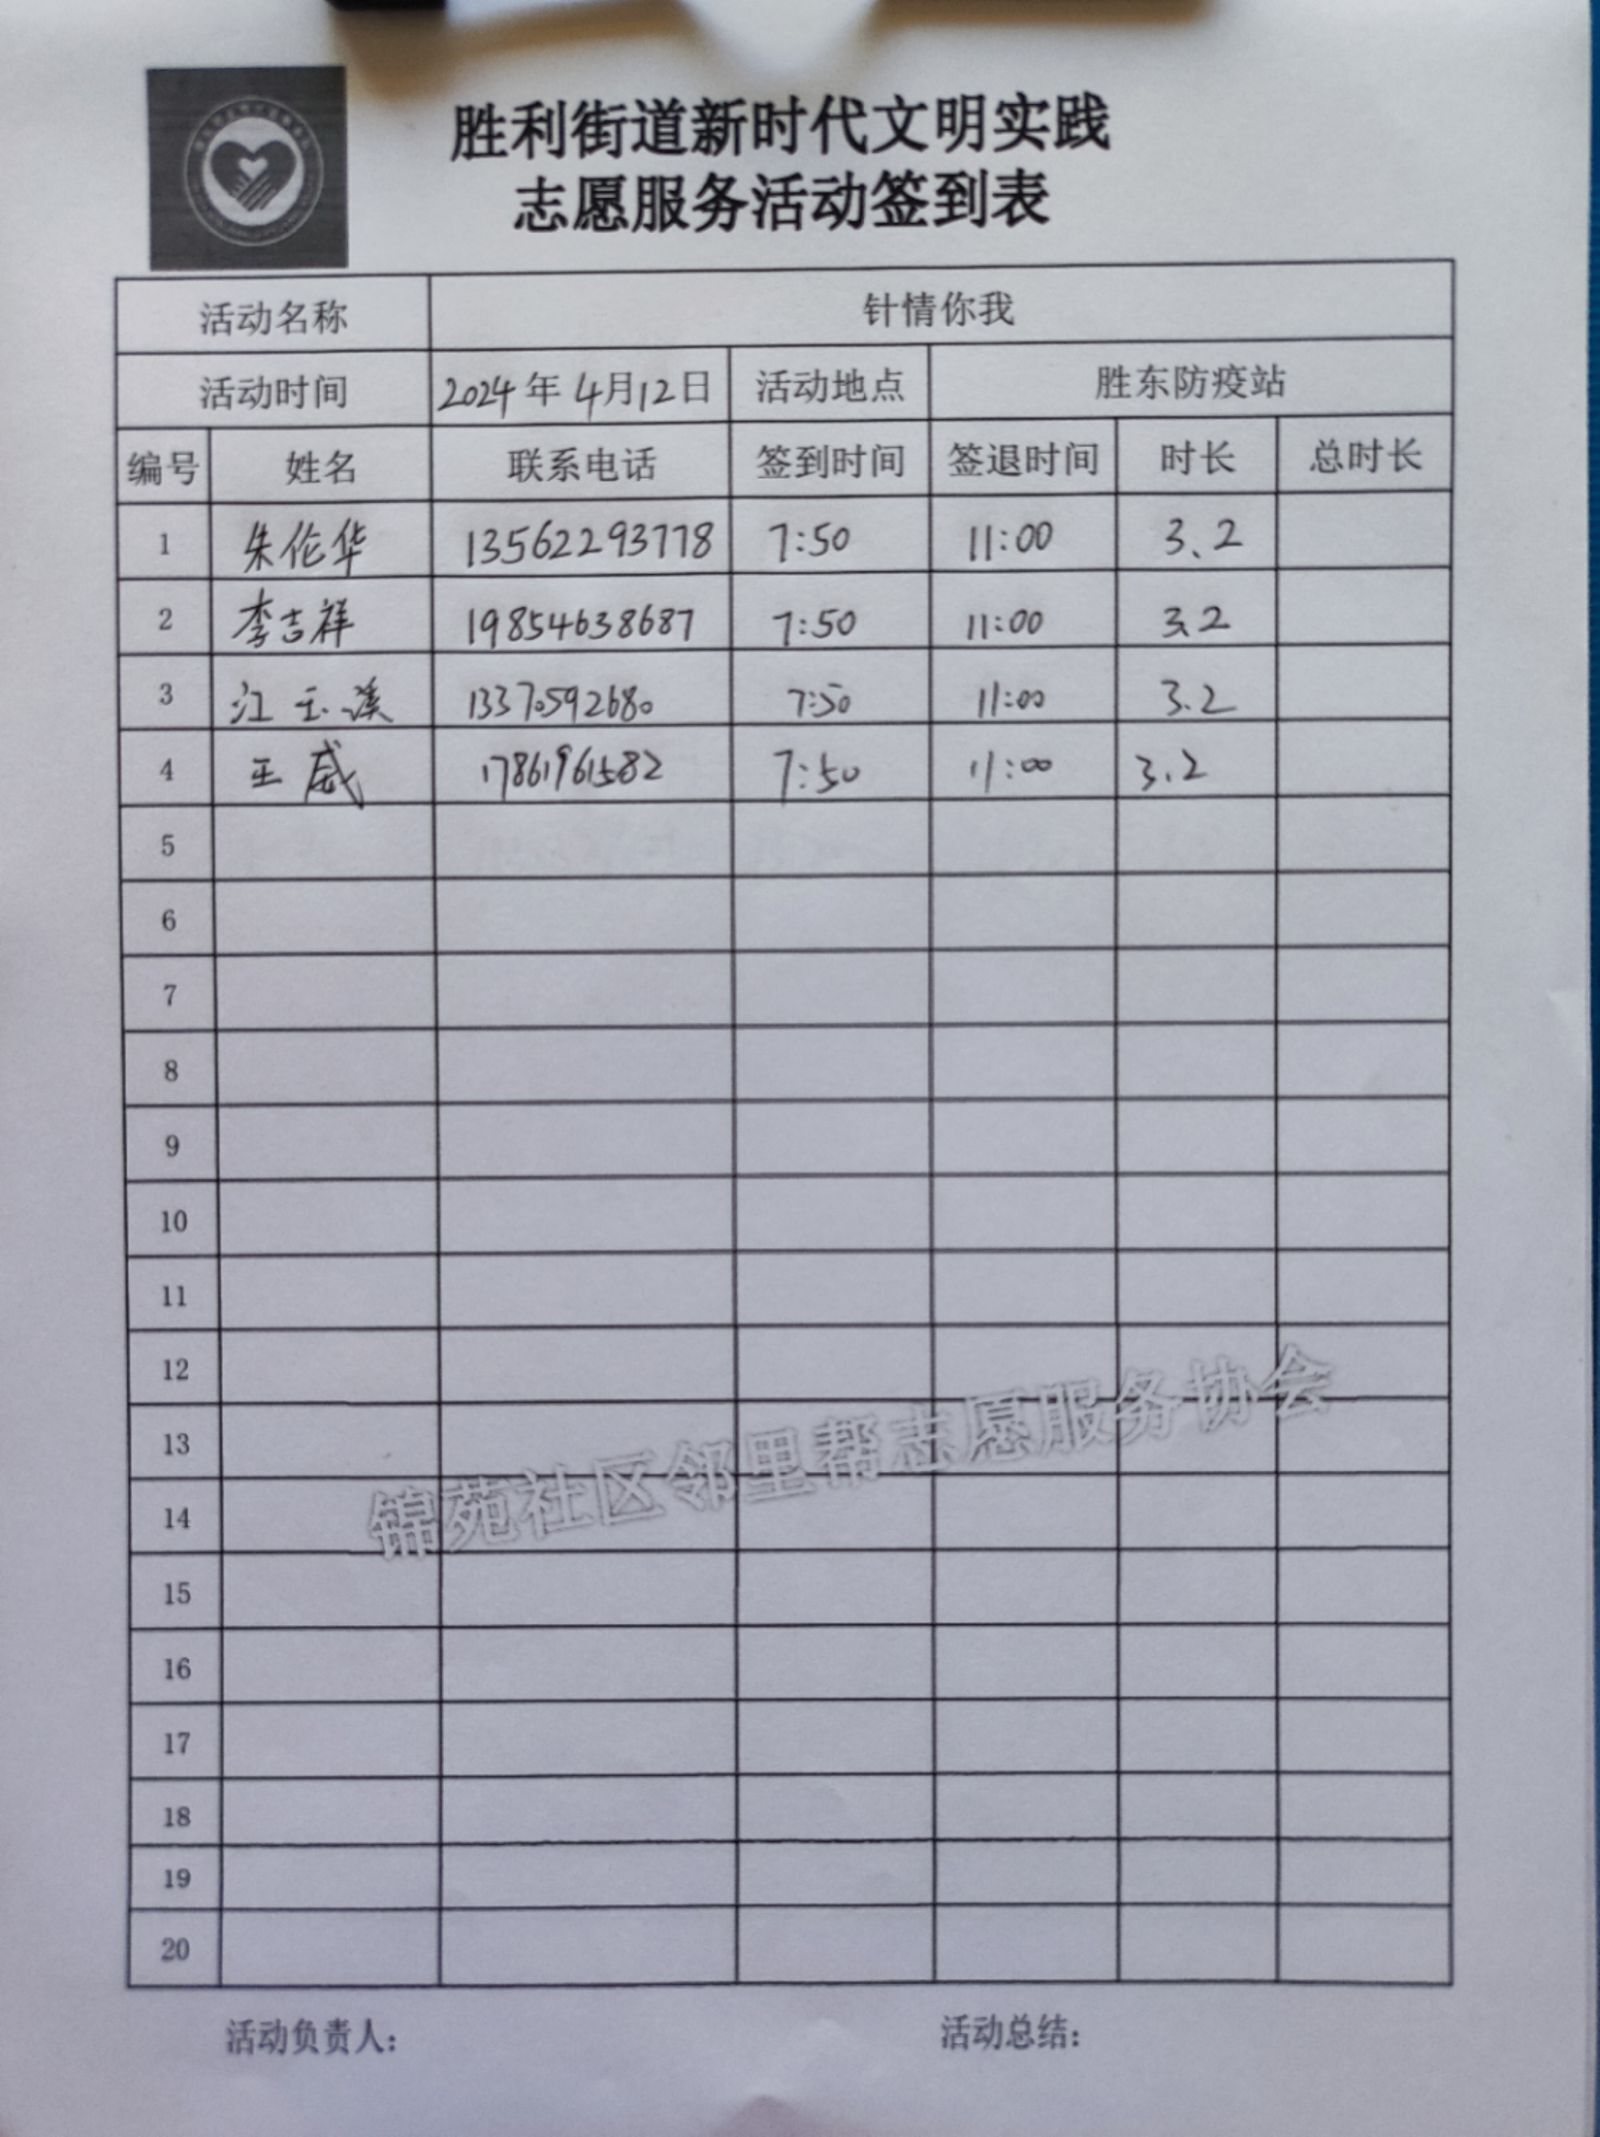 胜利街道新时代文明实践
志愿服务活动签到表
活动名称 针情你我
活动时间 2024年 4月12日 活动地点 胜东防疫站
编号 姓名 联系电话 签到时间 签退时间 时长 总时长
1 朱伦华 13562293778 7:50 11:00 3.2
2 李吉祥 19854638687 7:50 11:00 3.2
3 江玉溪 13370592680 7:50 11:00 3.2
4 王威 17861961582 7:50 11:00 3.2
5
6
7
8
9
10
11
12
13
14
15
16
17
18
19
20
锦苑社区邻里帮志愿服务协会
活动负责人： 活动总结：